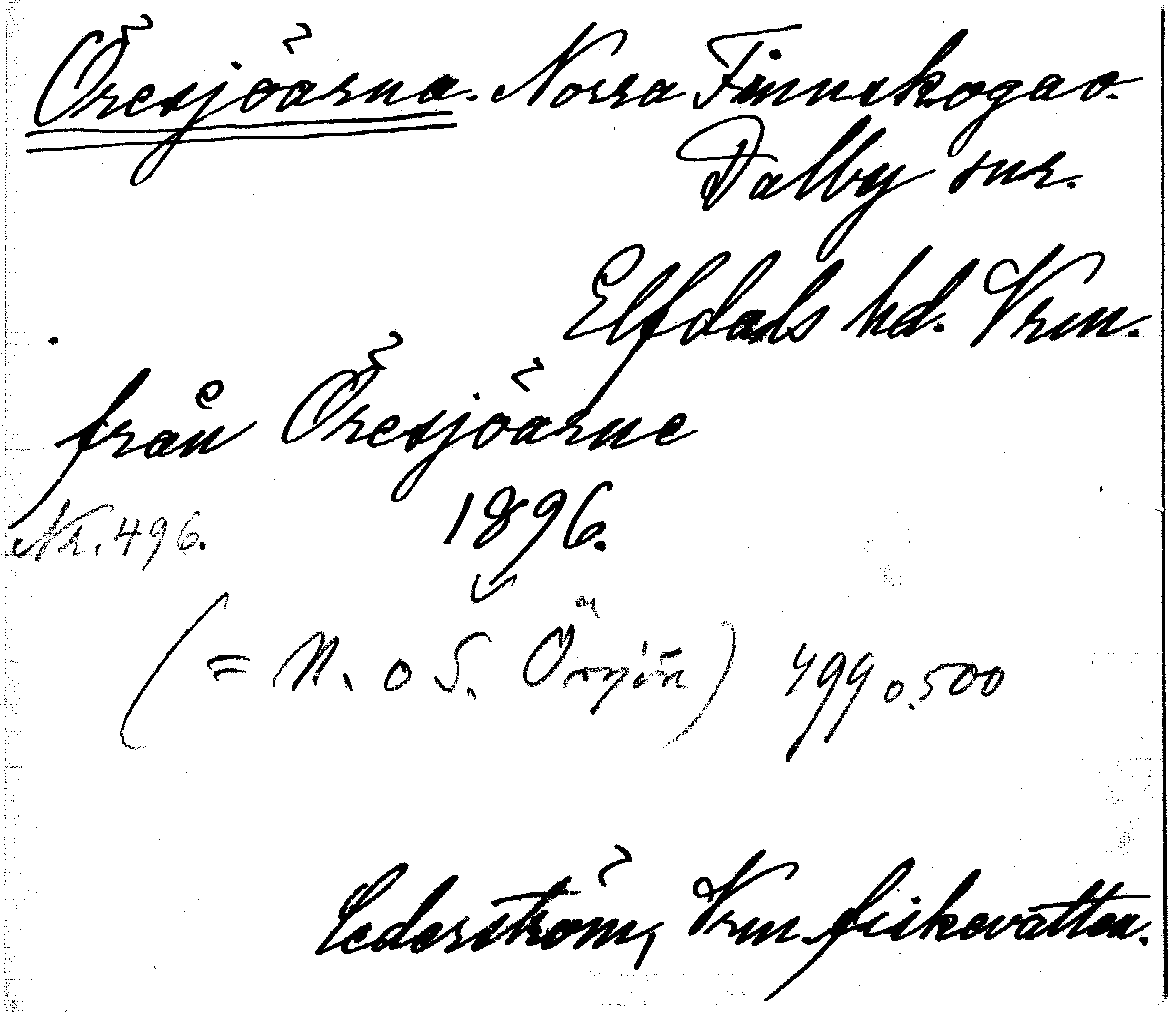 Öresjöarna. Norra Finnskoga o.
Dalby snr.
Elfdals hd. Vrm.
från Öresjöarne
Nr. 496. 1896.
(= N. o S. Örsjön) 499 o. 500
Cederström, Vrm. fiskevatten.